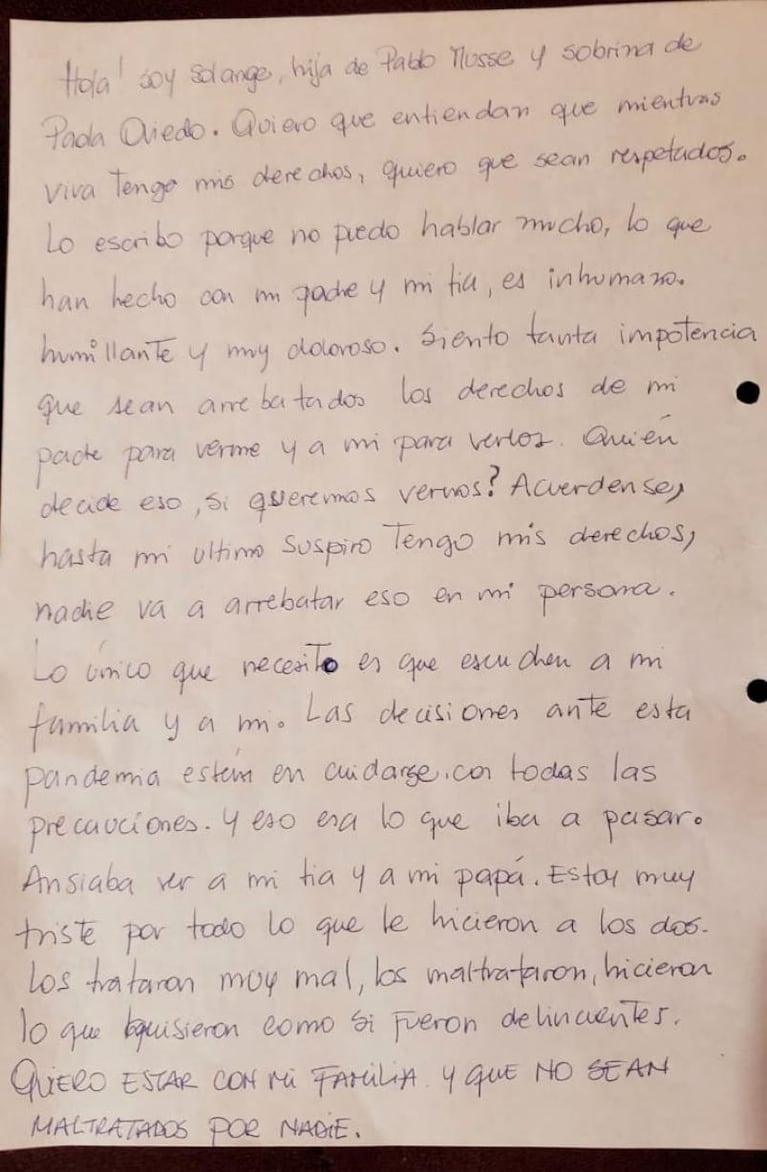 Hola! soy Solange, hija de Pablo Musse y sobrina de
Paola Oviedo. Quiero que entiendan que mientras
viva Tengo mis derechos, quiero que sean respetados.
Lo escribo porque no puedo hablar mucho, lo que
han hecho con mi padre y mi tia, es inhumano.
humillante y muy doloroso. Siento tanta impotencia
que sean arrebatados los derechos de mi
padre para verme y a mi para verlos. Quién
decide eso, si queremos vernos? Acuerdense,
hasta mi ultimo suspiro Tengo mis derechos,
nadie va a arrebatar eso en mi persona.
Lo único que necesito es que escuchen a mi
familia y a mi. Las decisiones ante esta
pandemia están en cuidarse, con todas las
precauciones. y eso era lo que iba a pasar.
Ansiaba ver a mi tia y a mi papá. Estoy muy
triste por todo lo que le hicieron a los dos.
Los trataron muy mal, los maltrataron, hicieron
lo que quisieron como si fueron delincuentes.
QUIERO ESTAR CON MI FAMILIA. Y QUE NO SEAN
MALTRATADOS POR NADIE.